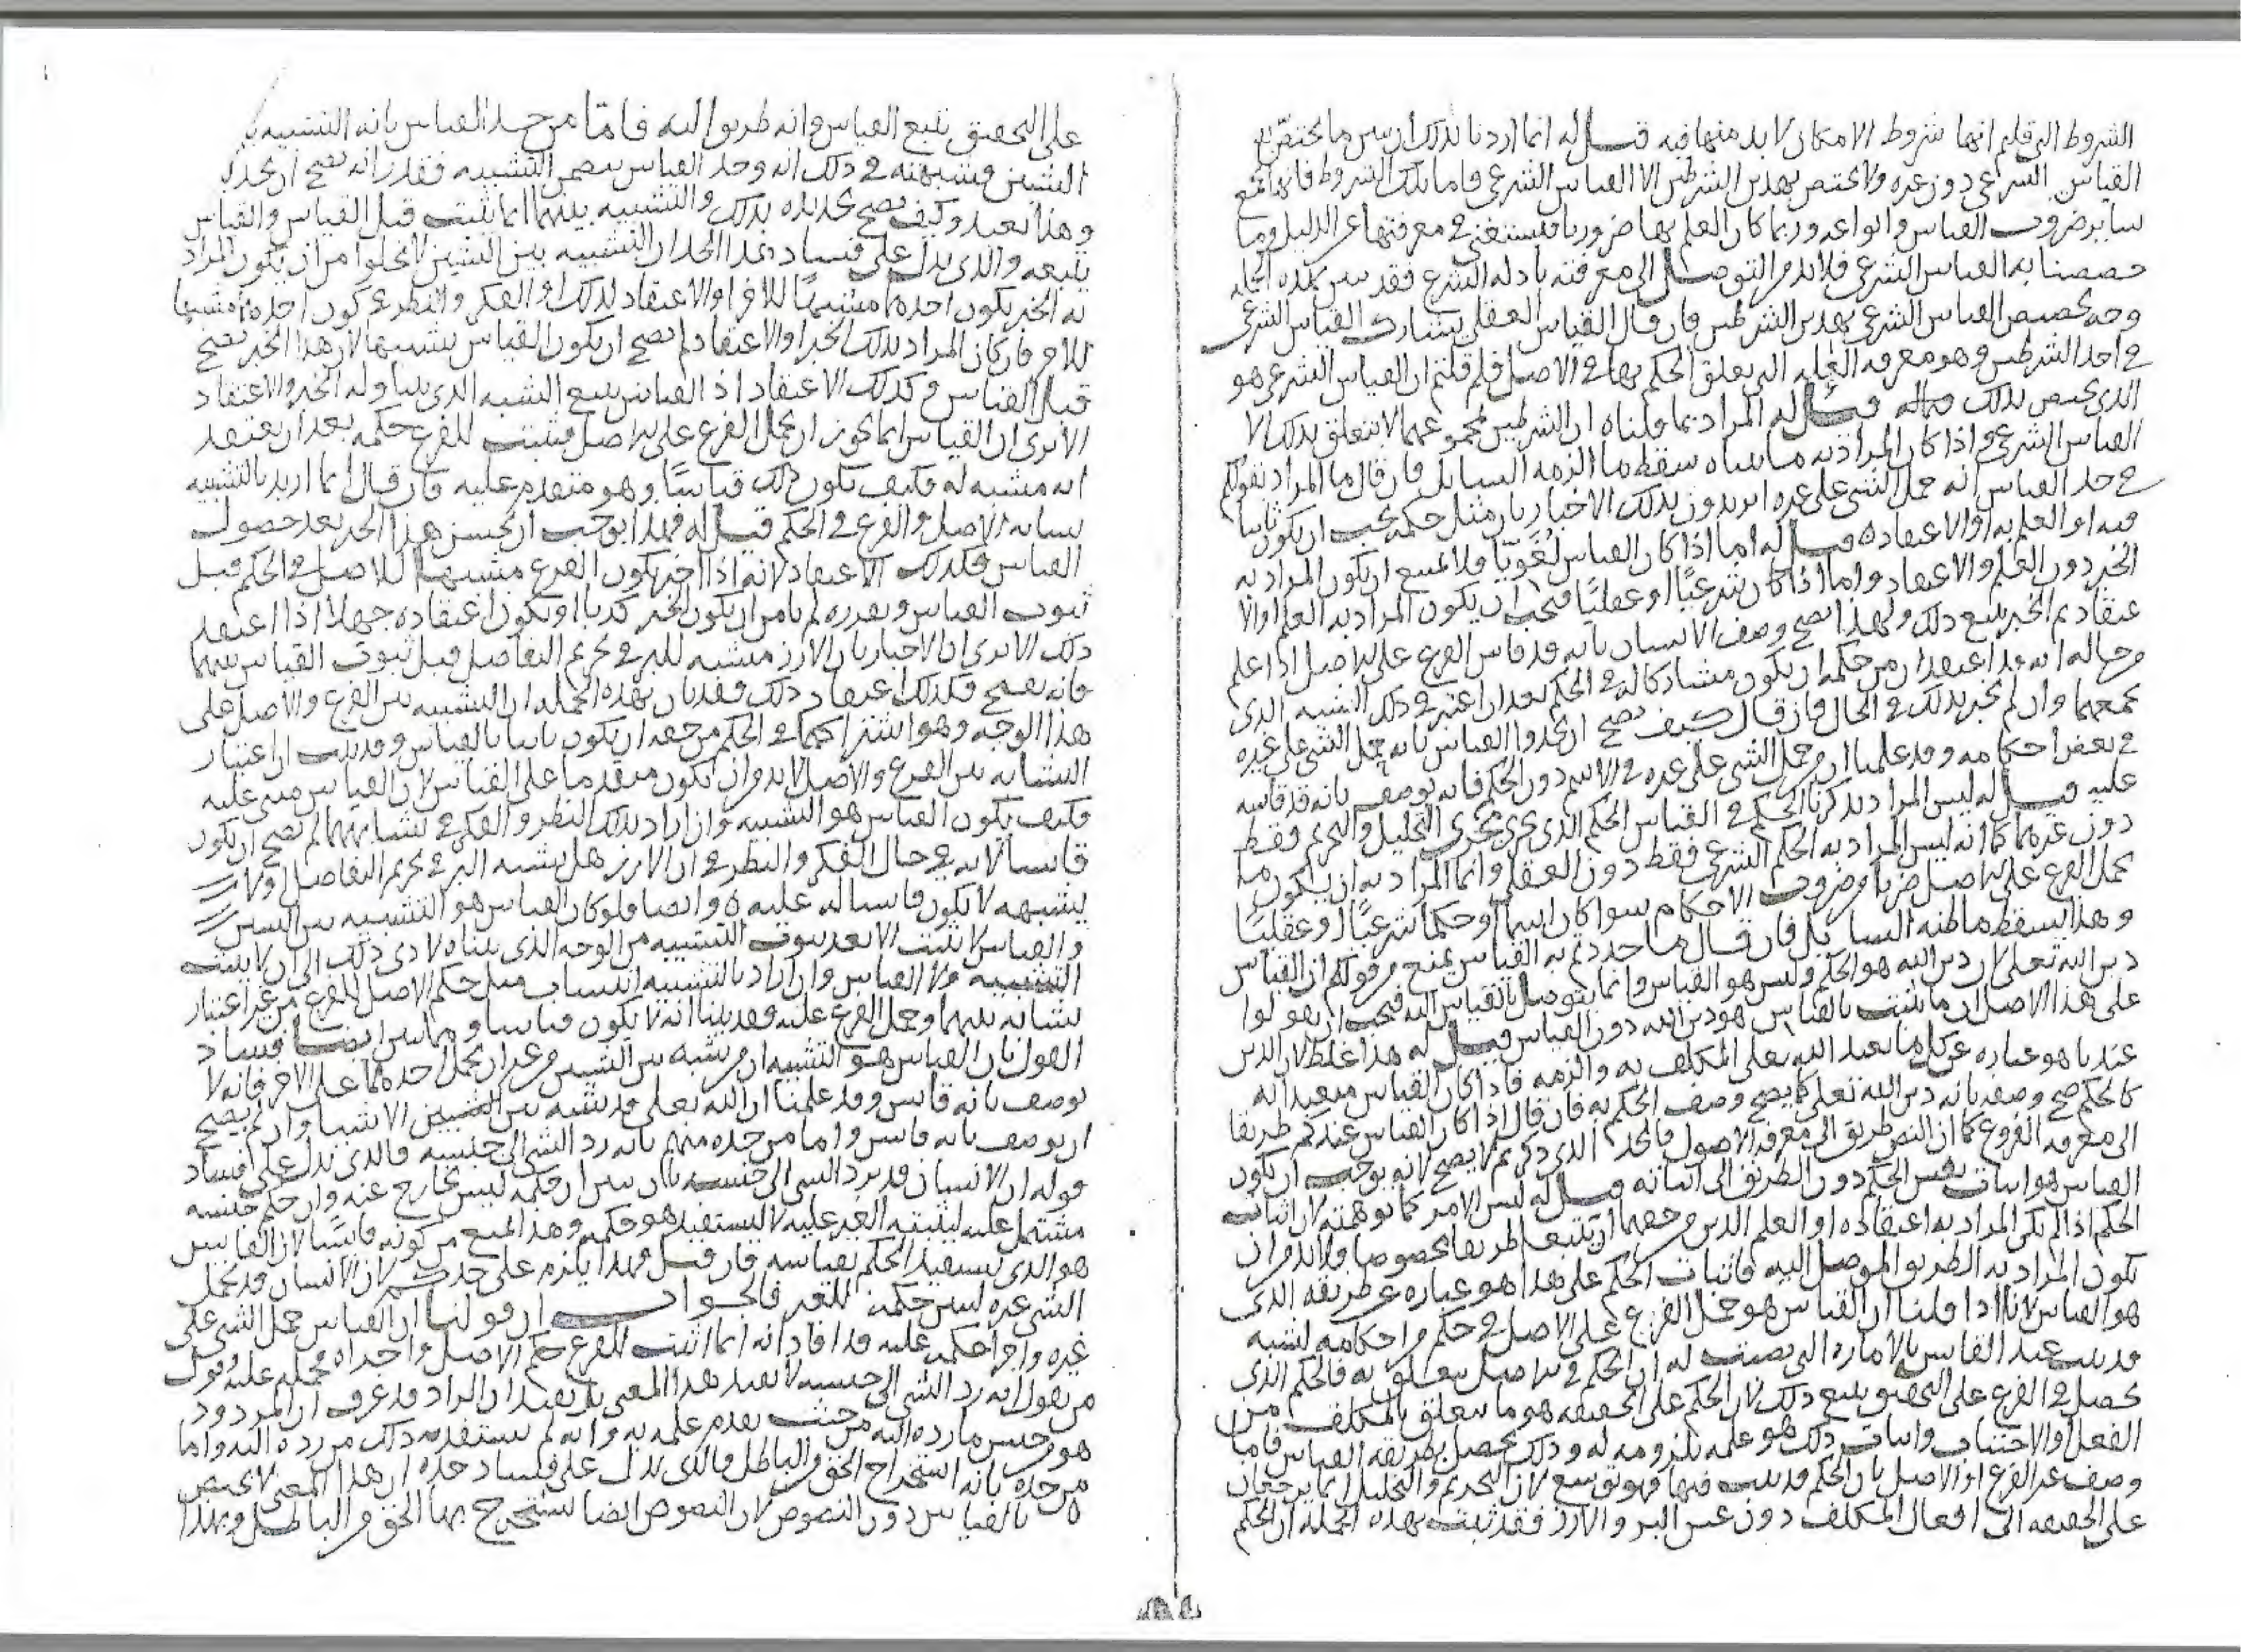 الشروط التي قلتم انها شروط الامكان لا بد منها فيه قيل له انما اردنا بذلك ان نبين ما يختص به
القياس الشرعي دون غيره ولا يختص بهذين الشرطين الا القياس الشرعي فاما تلك الشروط فانها تجمع
ساير ضروب القياس وانواعه وربما كان العلم بها ضروريا فيستغنى في معرفتها عن الدليل وما
خصصنا به القياس الشرعي فلا بد من التوصل الى معرفته بادلة الشرع فقد تبين بهذه الجملة
وجه تخصيص القياس الشرعي بهذين الشرطين فان قال القياس العقلي يشارك القياس الشرعي
في احد الشرطين وهو معرفة العلة التي يعلق الحكم بها في الاصل فلم قلتم ان القياس الشرعي هو
الذي يختص بذلك قيل له المراد بما قلناه ان الشرطين بمجموعهما لا يتعلق بذلك الا
القياس الشرعي واذا كان المراد به ما بيناه سقط ما الزمه السائل فان قال ما المراد بقولكم
في حد القياس انه حمل الشي على غيره اتريدون بذلك الاخبار بان مثل حكمه يجب ان يكون ثابتا
فيه او العلم به او الاعتقاد ه قيل له اما اذا كان القياس لغويا فلا يمتنع ان يكون المراد به
الخبر دون العلم والاعتقاد واما اذا كان شرعيا او عقليا فيجب ان يكون المراد به العلم او الا
عتقاد ثم الخبر يتبع ذلك ولهذا يصح وصف الانسان بانه قد قاس الفرع على الاصل اذا علم
من حاله انه قد اعتقد ان من حكمه ان يكون مشاركا له في الحكم بعد ان اعتبر في ذلك الشبه الذي
يجمعهما وان لم يخبر بذلك في الحال فان قال كيف يصح ان تحدوا القياس بانه حمل الشي على غيره
في بعض احكامه وقد علمنا ان من حمل الشي على غيره في الاسم دون الحكم فانه يوصف بانه قد قاسه
عليه قيل له ليس المراد بذكرنا الحكم في القياس الحكم الذي يجري مجرى التحليل والتحريم فقط
دون غيرهما كما انه ليس المراد به الحكم الشرعي فقط دون العقلي وانما المراد به ان يكون ما
يحمل الفرع على الاصل ضربا من ضروب الاحكام سوا كان اسما او حكما شرعيا او عقليا
وهذا يسقط ما ظنه السائل فان قال ما حددتم به القياس يمنع من قولكم ان القياس
دين الله تعلى لان دين الله هو الحكم وليس هو القياس وانما يتوصل بالقياس اليه فيجب ان يقولوا
على هذا الاصل ان ما يثبت بالقياس هو دين الله دون القياس قيل له هذا غلط لان الدين
عندنا هو عبارة عن كل ما تعبد الله تعلى المكلف به والزمه فاذا كان القياس متعبدا به
كالحكم صح وصفه بانه دين الله تعلى كما يصح وصف الحكم به فان قال اذا كان القياس عندكم طريقا
الى معرفة الفروع كما ان النص طريق الى معرفة الاصول فالحد الذي ذكرتم لا يصح لانه يوجب ان يكون
القياس هو اثبات نفس الحكم دون الطريق الى اثباته قيل له ليس الامر كما توهمته لان اثبات
الحكم اذا لم يكن المراد به اعتقاده او العلم الذين من حقهما ان يتبعا طريقا مخصوصا فلا بد من ان
يكون المراد به الطريق الموصل اليه فاثبات الحكم على هذا هو عبارة عن طريقه الذي
هو القياس لانا اذا قلنا ان القياس هو حمل الفرع على الاصل في حكم من احكامه لشبه
قد ثبت عند القايس بالامارة التي نصبت له ان الحكم في الاصل يتعلق به فالحكم الذي
يحصل في الفرع على التحقيق يتبع ذلك لان الحكم على الحقيقة هو ما يتعلق بالمكلف من
الفعل والاجتناب واثبات ذلك هو علمه بلزومه له وذلك يحصل بطريقة القياس فاما
وصف عين الفرع او الاصل بان الحكم قد ثبت فيها فهو توسع لان التحريم والتحليل انما يرجعان
على الحقيقة الى افعال المكلف دون عين البر والارز فقد ثبت بهذه الجملة ان الحكم
على التحقيق يتبع القياس وانه طريق اليه فاما من حد القياس بانه التشبيه بين
الشيئين وشبهته في ذلك انه وجد القياس يتضمن التشبيه فقدر انه يصح ان يحد به
وهذا بعيد وكيف يصح تحديده بذلك والتشبيه بينهما انما يثبت قبل القياس والقياس
يتبعه والذي يدل على فساد هذا الحد ان التشبيه بين الشيئين لا يخلوا من ان يكون المراد
به الخبر بكون احدهما مشبها للاخر او الاعتقاد لذلك او الفكر والنظر في كون احدهما مشبها
للاخر فان كان المراد بذلك الخبر او الاعتقاد لم يصح ان يكون القياس تشبيها لان هذا الخبر يصح
قبل القياس وكذلك الاعتقاد اذ القياس يتبع الشبه الذي يتناوله الخبر والاعتقاد
الا ترى ان القياس انما يجوز ان يحمل الفرع على الاصل فيثبت للفرع حكمه بعد ان يعتقد
انه مشبه له فكيف يكون ذلك قياسا وهو متقدم عليه فان قال انما اريد بالتشبيه
تشابه الاصل والفرع في الحكم قيل له فهذا يوجب ان يحسن هذا الخبر بعد حصول
القياس وكذلك الاعتقاد لانه اذا اخبر بكون الفرع مشبها للاصل في الحكم قبل
ثبوت القياس وتقرره لم يامن ان يكون الخبر كذبا او يكون اعتقاده جهلا اذا اعتقد
ذلك الا ترى ان الاخبار بان الارز مشبه للبر في تحريم التفاضل قبل ثبوت القياس بينهما
فانه يقبح وكذلك اعتقاد ذلك فقد بان بهذه الجملة ان التشبيه بين الفرع والاصل على
هذا الوجه وهو اشتراكهما في الحكم من حقه ان يكون ثابتا بالقياس وقد ثبت ان اعتبار
التشابه بين الفرع والاصل لا بد وان يكون متقدما على القياس لان القياس مبني عليه
فكيف يكون القياس هو التشبيه وان اراد بذلك النظر والفكر في تشابههما لم يصح ان يكون
قايسا لانه في حال الفكر والنظر في ان الارز هل يشبه البر في تحريم التفاضل او لا
يشبهه لا يكون قايسا له عليه ه وايضا فلو كان القياس هو التشبيه بين الشيئين
والقياس لا يثبت الا بعد ثبوت التشبيه من الوجه الذي بيناه لادى ذلك الى ان لا يثبت
التشبيه ولا القياس وان اراد بالتشبيه اثبات مثل حكم الاصل للفرع من غير اعتبار
تشابه بينهما وحمل الفرع عليه فقد بينا انه لا يكون قياسا ومما يبين ايضا فساد
القول بان القياس هو التشبيه ان من شبه بين الشيئين من غير ان يحمل احدهما على الاخر فانه لا
يوصف بانه قايس وقد علمنا ان الله تعلى قد شبه بين الشيئين الاشياء وان لم يصح
ان يوصف بانه قايس واما من حده منهم بانه رد الشي الى جنسه فالذي يدل على فساد
قوله ان الانسان قد يرد الشي الى جنسه بان يبين ان حكمه ليس بخارج عنه وان حكم جنسه
مشتمل عليه ليثبته الغير عليه لا ليستفيد هو حكمه وهذا يمنع من كونه قايسا لان القايس
هو الذي يستفيد الحكم بقياسه فان قيل فهذا يلزم على حدكم لان الانسان قد يحمل
الشي على غيره ليبين حكمه للغير فالجواب ان قولنا ان القياس حمل الشي على
غيره واجرا حكمه عليه قد افاد انه انما اثبت للفرع حكم الاصل واجراه بحمله عليه وقول
من يقول انه رد الشي الى جنسه لا يفيد هذا المعنى بل يفيد ان الراد قد عرف ان المردود
هو من جنس ما رده اليه من حيث تقدم علمه به وانه لم يستفد به ذلك من رده اليه واما
من حده بانه استخراج الحق من الباطل فالذي يدل على فساد حده ان هذا المعنى لا يختص
بالقياس دون النصوص لان النصوص ايضا يستخرج بها الحق من الباطل وبهذا